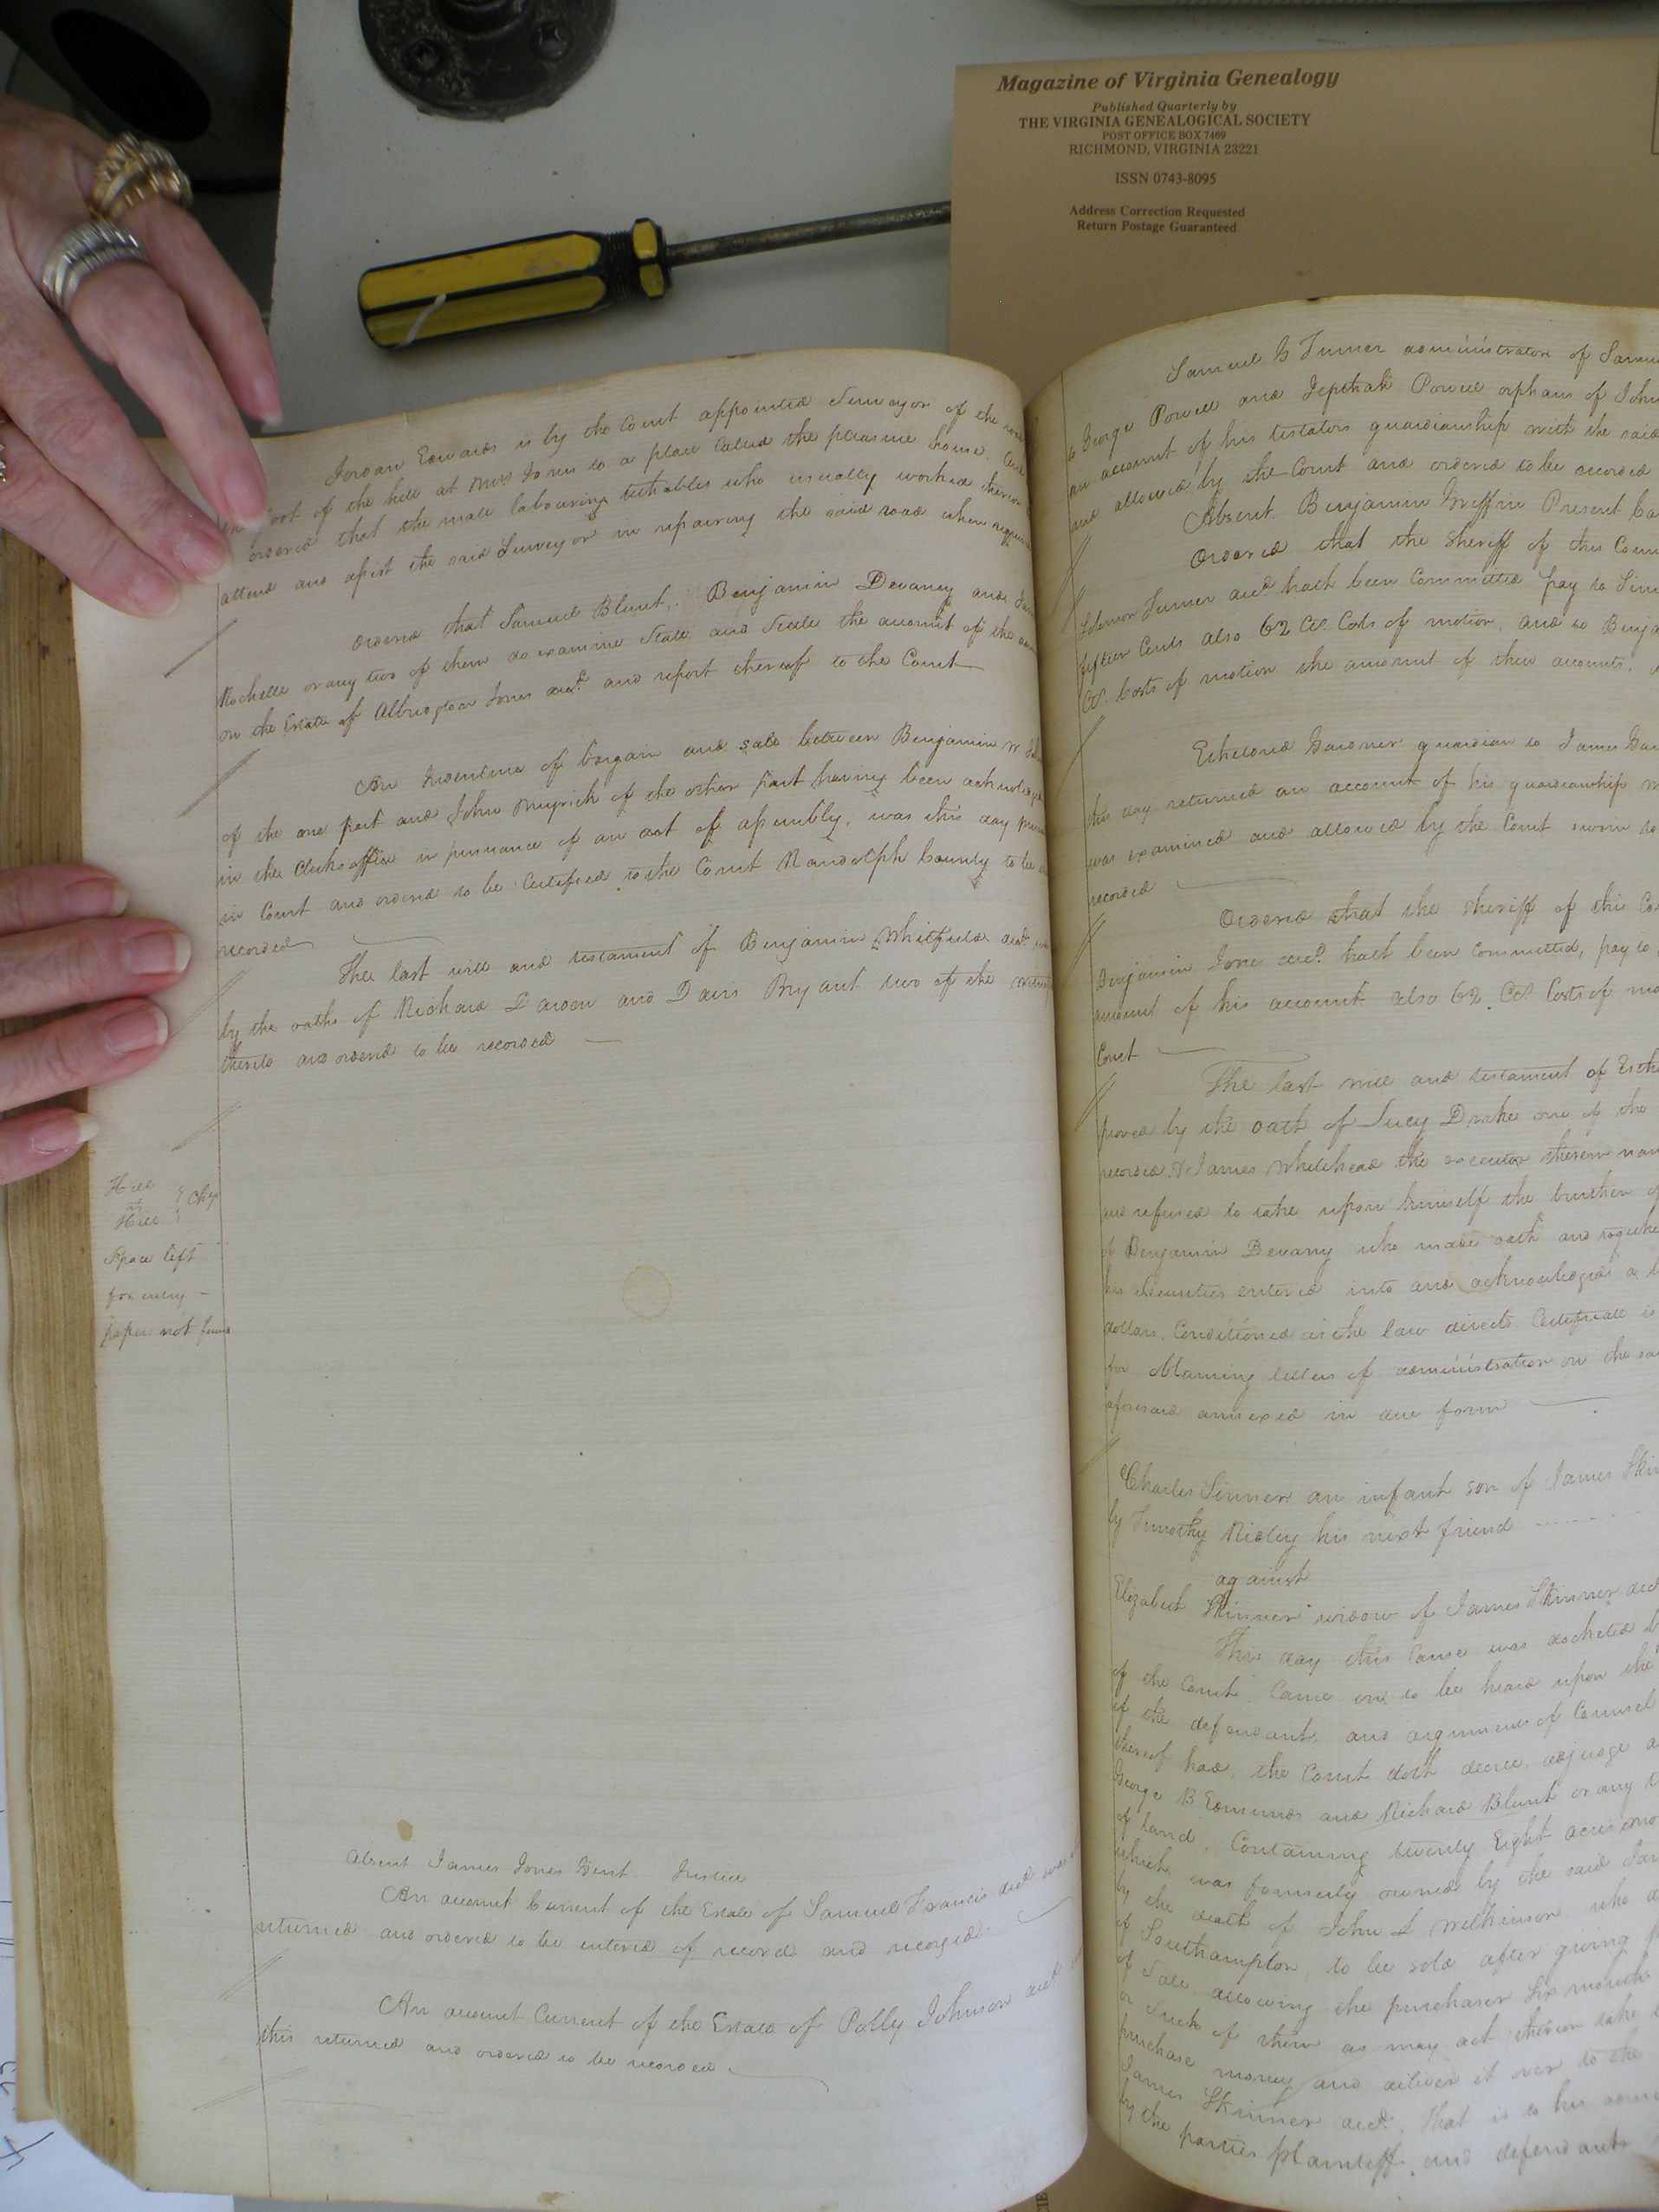 Magazine of Virginia Genealogy
Published Quarterly by
THE VIRGINIA GENEALOGICAL SOCIETY
POST OFFICE BOX 7469
RICHMOND, VIRGINIA 23221
ISSN 0743-8095
Address Correction Requested
Return Postage Guaranteed
Jordan Edwards is by the Court appointed Surveyor of the road
foot of the hill at Mrs Jones to a place Called the pleasure house, and
ordered that the male labouring tithables who usually worked thereon
attend and assist the said Surveyor in repairing the said road when
Ordered that Samuel Blunt, Benjamin Devaney and
Rochelle or any two of them do examine State and Settle the account of the
on the Estate of Albridgton Jones decd. and report thereof to the Court
An Indenture of bargain and sale between Benjamin W
of the one part and John Myrick of the other part having been acknowledged
in the Clerks office in pursuance of an act of assembly, was this day
in Court and ordered to be Certified to the Court Randolph County to be
recorded
The last will and testament of Benjamin Whitfield decd.
by the oaths of Richard Darden and Davis Bryant two of the
thereto and ordered to be recorded
Hill
vs
Hill } Chy
Space left
for entry –
papers not found
Absent James Jones Gent Justice
An account Current of the Estate of Samuel Francis decd was
returned and ordered to be entered of record and recorded
An account Current of the Estate of Polly Johnson decd
this returned and ordered to be recorded.
Samuel B Turner administrator of
to George Powell and Jepthah Powell orphans of John
an account of his testators guardianship with the said
and allowed by the Court and ordered to be recorded
Absent Benjamin Griffin Present
Ordered that the Sheriff of this
Turner decd. hath been Committed pay to
fifteen Cents also 62 Cts. Costs of motion, and to
Cts. Costs of motion the amount of their accounts.
Etheldred Gardner guardian to James
this day returned an account of his guardianship
was examined and allowed by the Court sworn to
recorded
Ordered that the Sheriff of this
Benjamin Jones decd. hath been Committed, pay to
amount of his account also 62 Cts Costs of
Court
The last will and testament of
proved by the oath of Lucy Drake one of the
recorded, & James Whitehead the executor therein
and refused to take upon himself the burthen
Benjamin Devany who made oath and together
his securities entered into and acknowledged a
dollars, Conditioned as the law directs. Certificate is
for Obtaining letters of administration on the
aforesaid annexed in due form
Charles Skinner an infant son of James
by Timothy Ridley his next friend
against
Elizabeth Skinner widow of James Skinner decd
This day this Cause was docketed
of the Court, Came on to be heard upon the
of the defendant, and arguments of Counsel
thereof had, the Court doth decree, adjudge
George B Edmunds and Richard Blunt or any
of land, Containing twenty Eight acres
which was formerly owned by the said
by the death of John L Wilkinson who
of Southampton, to be sold after giving
of Sale, allowing the purchaser Six months
or Such of them as may act thereon take
purchase money and deliver it over to the
James Skinner decd. That is to his
by the parties plaintiff and defendants